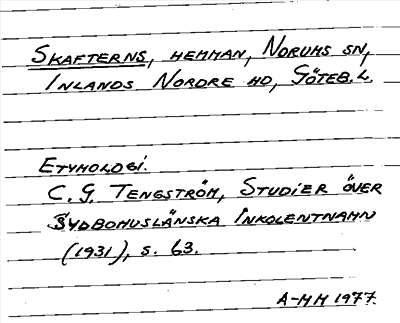 SKAFTERNS, HEMMAN, NORUMS SN,
INLANDS NORDRE HD, GÖTEB. L.
ETYMOLOGI.
C. G. TENGSTRÖM, STUDIER ÖVER
SYDBOHUSLÄNSKA INKOLENTNAMN
(1931), S. 63.
A-MM 1977